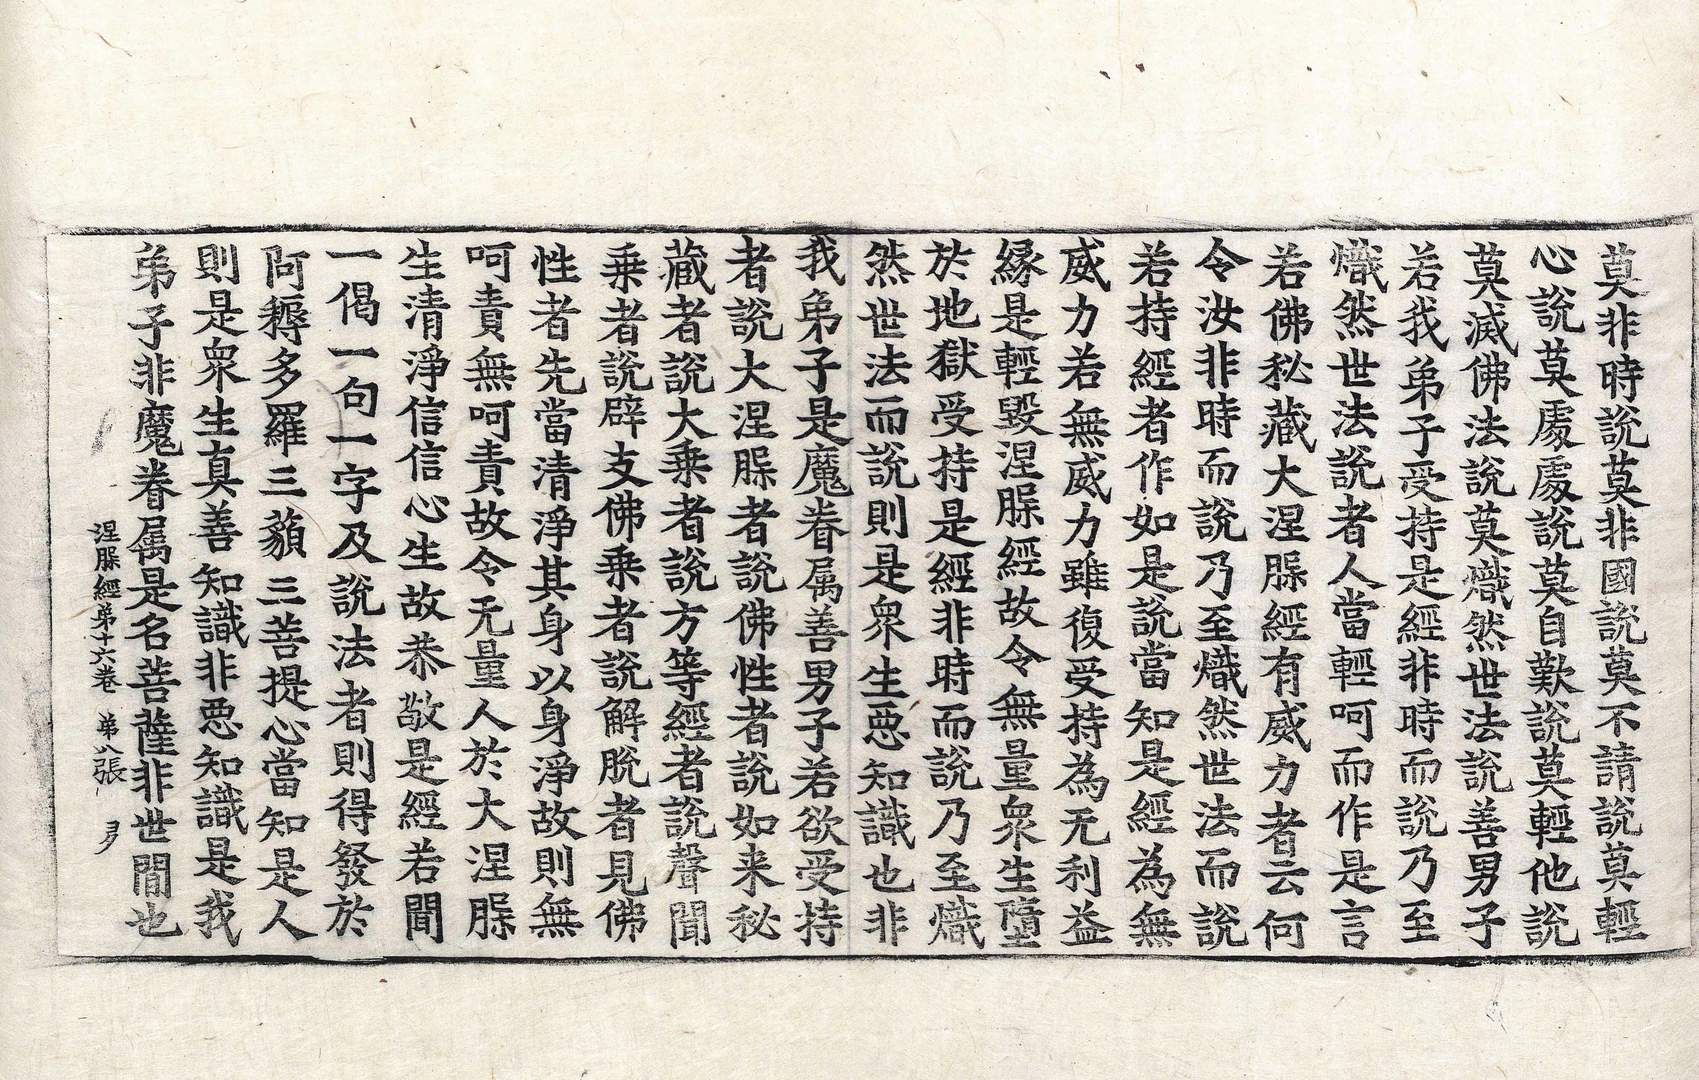 莫非時說莫非國說莫不請說莫輕
心說莫處處說莫自歎說莫輕他說
莫滅佛法說莫熾然世法說善男子
若我弟子受持是經非時而說乃至
熾然世法說者人當輕呵而作是言
若佛秘藏大涅槃經有威力者云何
令汝非時而說乃至熾然世法而說
若持經者作如是說當知是經為無
威力若無威力雖復受持為无利益
緣是輕毀涅槃經故令無量眾生墮
於地獄受持是經非時而說乃至熾
然世法而說則是眾生惡知識也非
我弟子是魔眷属善男子若欲受持
者說大涅槃者說佛性者說如来秘
藏者說大乗者說方等經者說聲聞
乗者說辟支佛乗者說解脫者見佛
性者先當清淨其身以身淨故則無
呵責無呵責故令无量人於大涅槃
生清淨信信心生故恭敬是經若聞
一偈一句一字及說法者則得發於
阿耨多羅三藐三菩提心當知是人
則是眾生真善知識非惡知識是我
弟子非魔眷属是名菩薩非世間也
涅槃經第十六卷 第八張